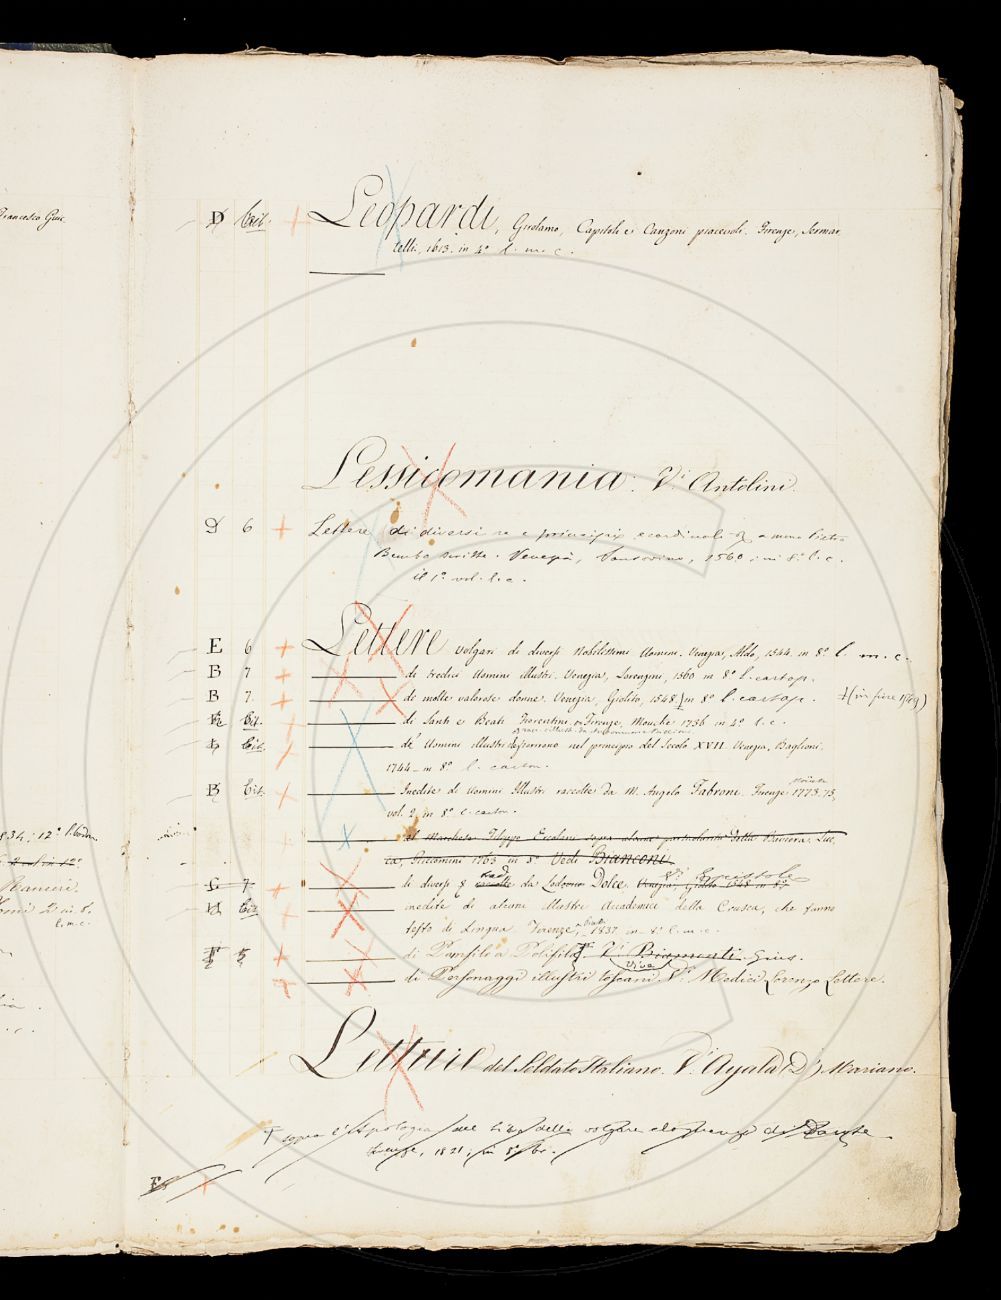 Francesco Giu.
D Crit. Leopardi, Girolamo, Capitoli e Canzoni piacevoli. Firenze, Sermar
telli, 1613. in 4° l. m. c.
Lessicomania. Vi Antolini.
D 6 Lettere di diversi re e principi e cardinali a mons. Pietro
Bembo scritte. Venezia, Sansovino, 1560 in 8° l. c.
il 1° vol. l. c.
E 6 Lettere volgari di diversi Nobilissimi Uomini. Venezia, Aldo, 1544. in 8° l. m. c.
B 7 di tredici Uomini illustri. Venezia, Lorenzini, 1560 in 8° l. cartap.
B 7. di molte valorose donne. Venezia, Giolito, 1548 in 8° l. cartap. (in fine 1549)
Cit. di Santi e Beati Fiorentini. Firenze, Moucke 1736 in 4° l. c.
Cit. de' Uomini illustri che fiorirono nel principio del Secolo XVII. Venezia, Baglioni.
1744 in 8° l. carton.
B Cit. Inedite di Uomini Illustri raccolte da M. Angelo Fabroni. Firenze 1773. 75,
vol. 2 in 8° l. carton.
al Marchese Filippo Ercolani sopra alcune particolarità della Baviera. Luc
ca, Riccomini 1763 in 8° Vedi Bianconi.
834, 12°
Ranieri.
l. m. c.
G 7 di diversi da Lodovico Dolce. Venezia, Giolito 1548 in 8° Vi Epistole
Cit. inedite di alcuni illustri Accademici della Crusca, che fanno
testo di Lingua. Firenze, 1837 in 8° l. m. c.
5 di Panfilo a Polifilo. Vi Biamonti Gius.
di Personaggi illustri toscani. Vi Medici Lorenzo Lettere.
Letture del Soldato Italiano. Vi Ayala (D') Mariano.
sopra l'Apologia del libro della volgare eloquenza di Dante
1821; in 8°